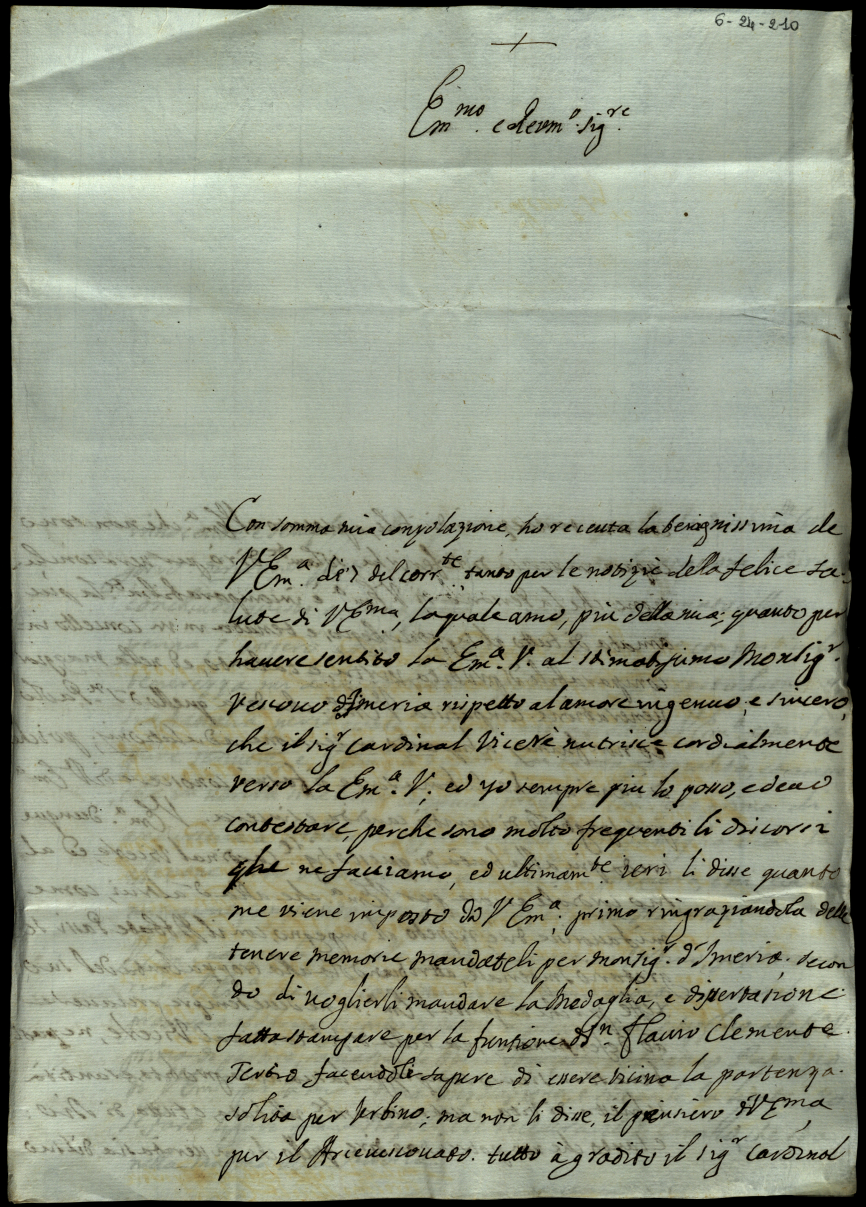 6-24-210
+
Em.mo e Revm.o Sig.re
Con somma mia consolazione, ho receuta la benignissima de
V Em.a de 7 del corr.te tanto per le notizie della felice sa-
lute di V Ema, la quale amo, piu della mia; quanto per
havere sentito la Em.a V. al stimatissimo Monsig.r
vescovo d'Imeria rispetto al amore ingenuo, e sincero,
che il sig.r Cardinal Vicerè nutrisce cordialmente
verso la Em.a V; ed yo sempre piu lo posso, e devo
contestare, perche sono molto frequenti li discorsi
que ne facciamo, ed ultimam.te ieri li disse quanto
me viene imposto da V Em.a; primo ringraziandola delle
tenere memorie mandateli per monsig.r d'Imeria. secon
do di voglierli mandare la Medaglia, e dissertazione
fatta stampare per la funzione di n. Flavio Clemente.
Terzo facendoli sapere di essere vicina la partenza
solita per Urbino; ma non li disse, il pensiero di V Ema
per il Arcivescovato. tutto à gradito il sig.r Cardinal